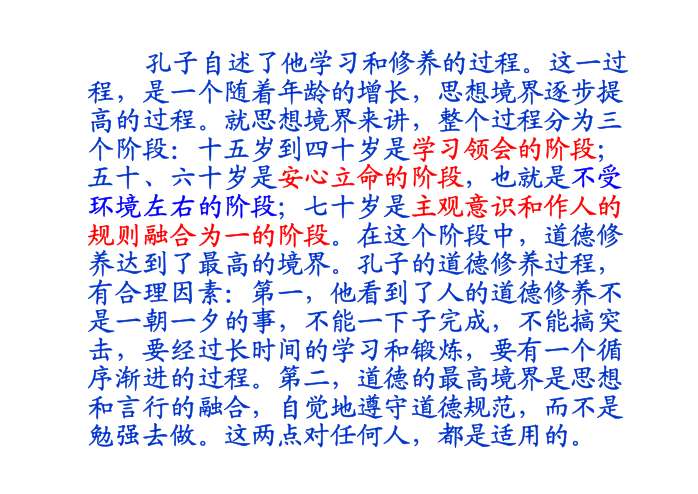 孔子自述了他学习和修养的过程。这一过
程，是一个随着年龄的增长，思想境界逐步提
高的过程。就思想境界来讲，整个过程分为三
个阶段：十五岁到四十岁是学习领会的阶段；
五十、六十岁是安心立命的阶段，也就是不受
环境左右的阶段；七十岁是主观意识和作人的
规则融合为一的阶段。在这个阶段中，道德修
养达到了最高的境界。孔子的道德修养过程，
有合理因素：第一，他看到了人的道德修养不
是一朝一夕的事，不能一下子完成，不能搞突
击，要经过长时间的学习和锻炼，要有一个循
序渐进的过程。第二，道德的最高境界是思想
和言行的融合，自觉地遵守道德规范，而不是
勉强去做。这两点对任何人，都是适用的。